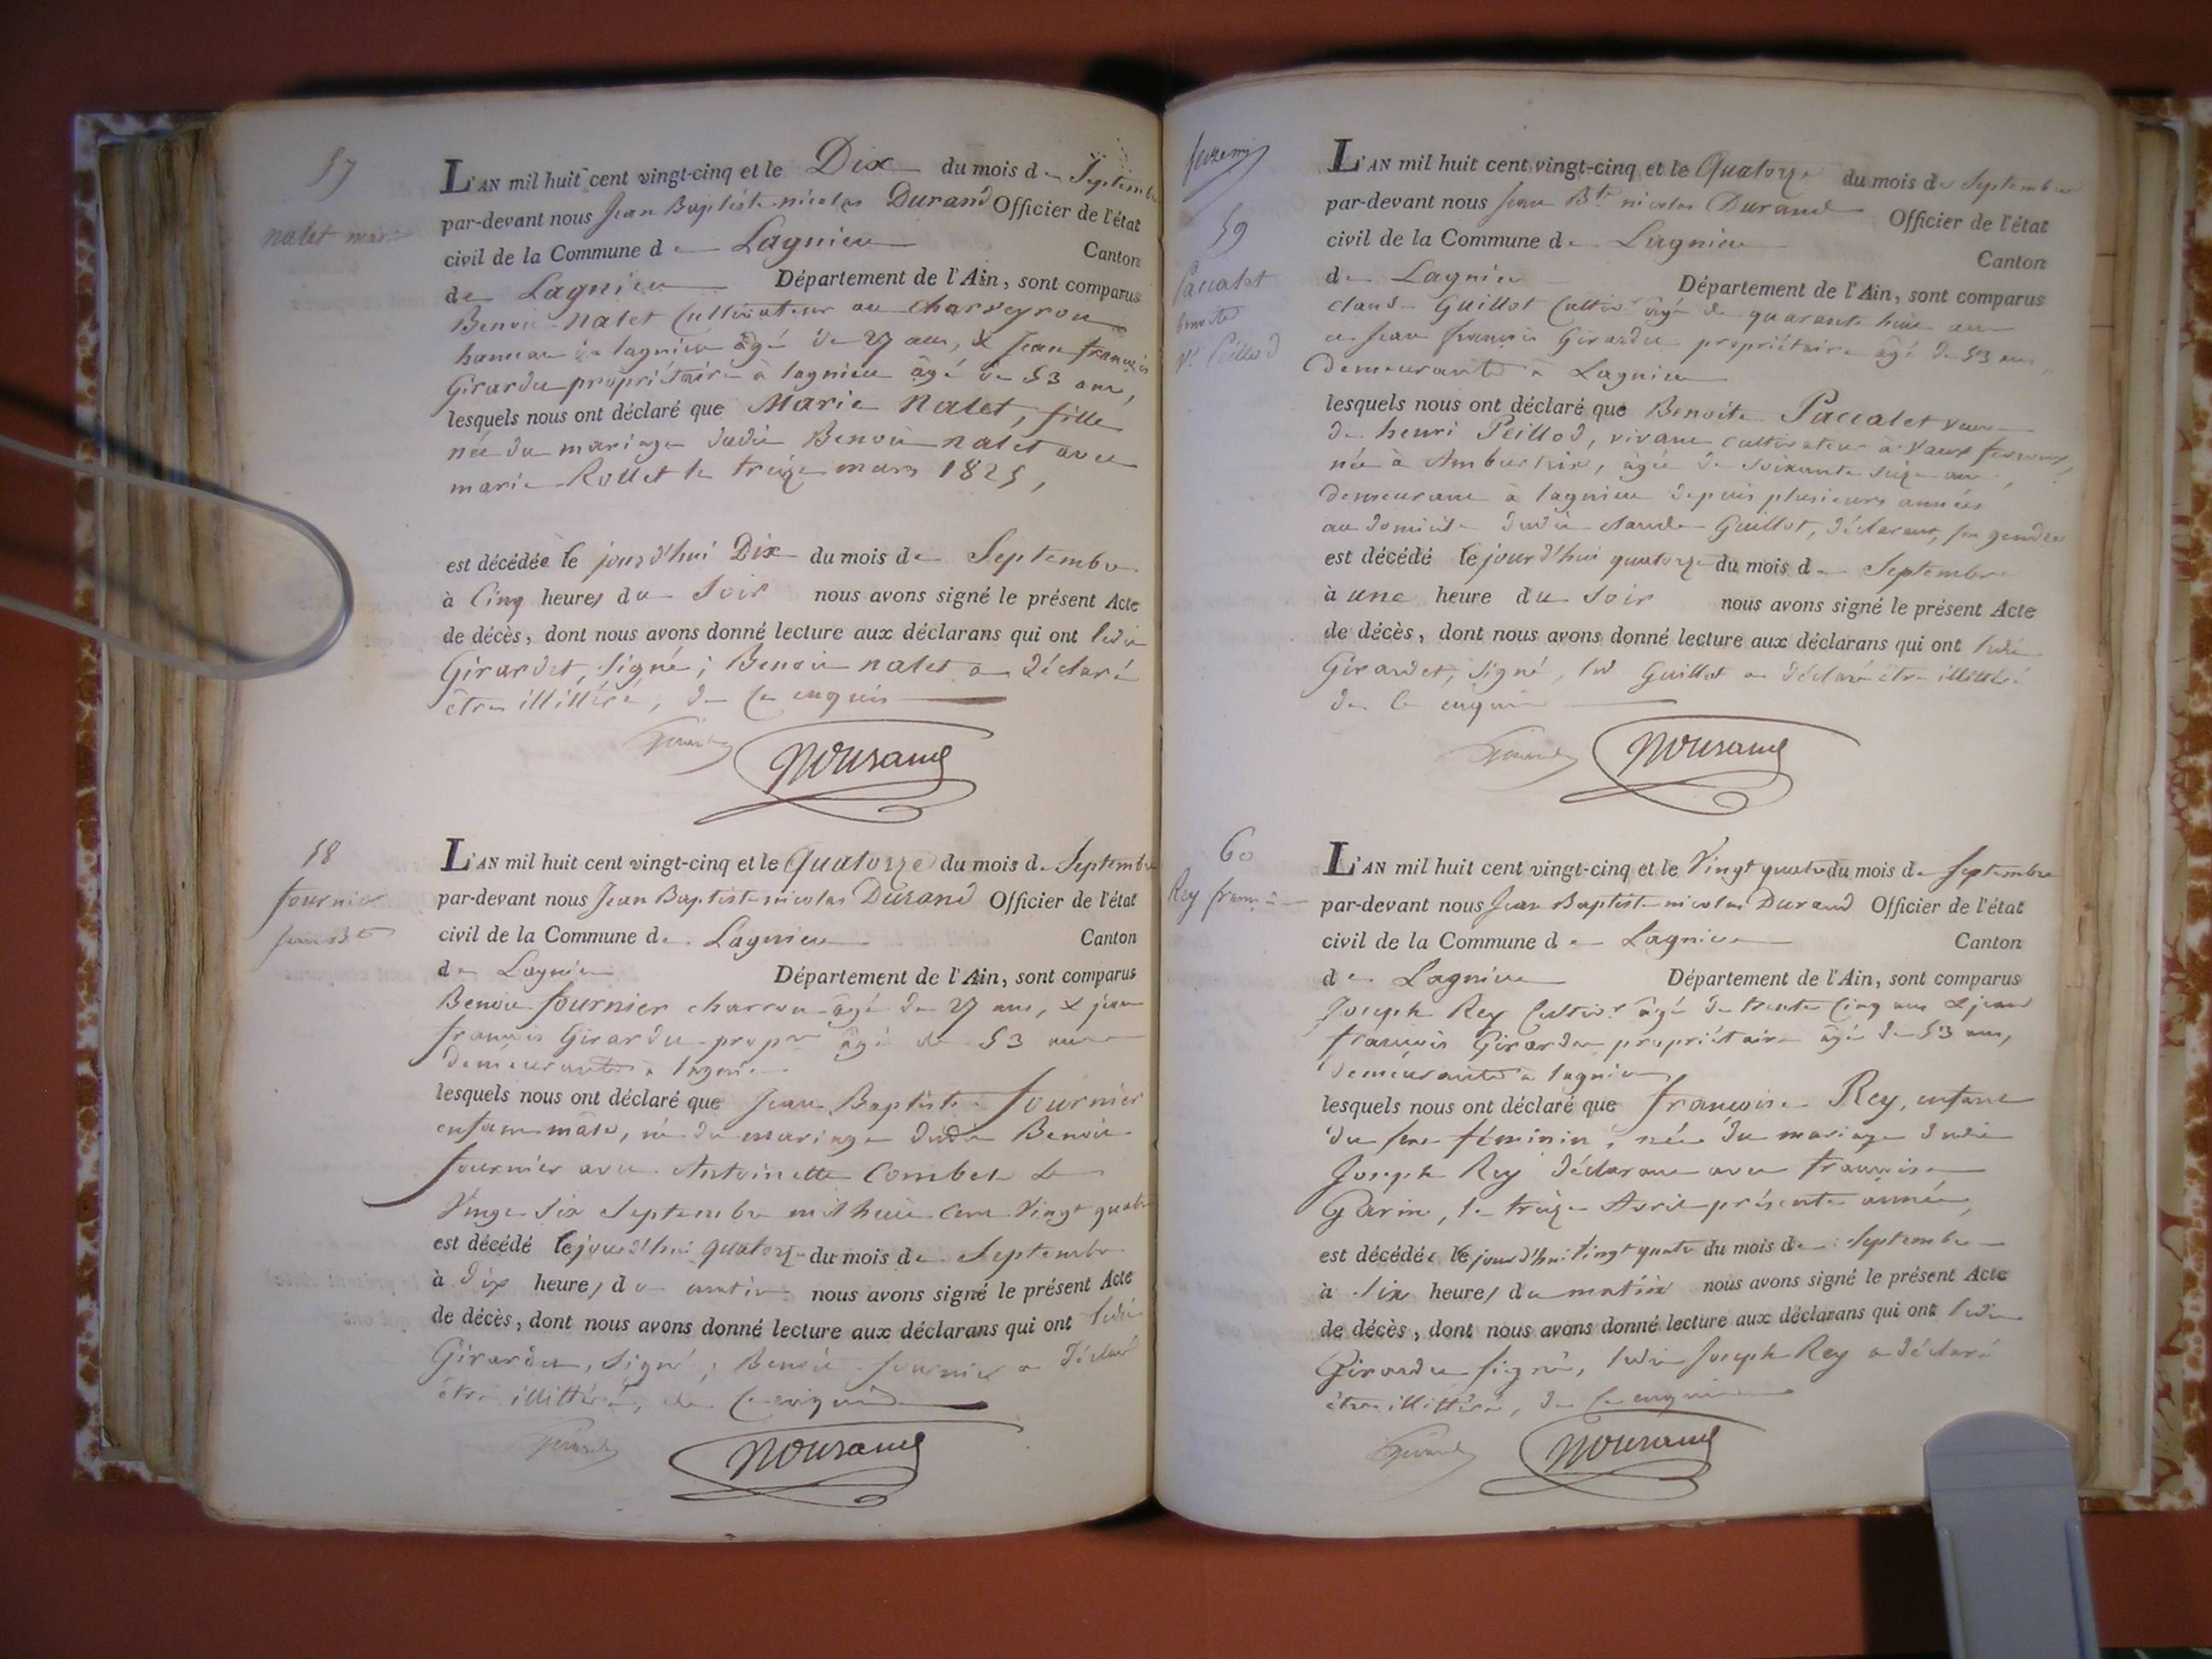 57
nalet marie
L'AN mil huit cent vingt-cinq et le Dix du mois de Septembre
par-devant nous Jean Baptiste nicolas Durand Officier de l'état
civil de la Commune de Lagnieu Canton
de Lagnieu Département de l'Ain, sont comparus
Benoit nalet Cultivateur au charveyron
hameau de lagnieu âgé de 27 ans, & Jean françois
Girardet propriétaire à lagnieu âgé de 53 ans,
lesquels nous ont déclaré que Marie nalet, fille
née du mariage dudit Benoit nalet avec
marie Rollet le treize mars 1825,
est décédée le jourd'hui Dix du mois de Septembre
à Cinq heures du Soir nous avons signé le présent Acte
de décès, dont nous avons donné lecture aux déclarans qui ont ledit
Girardet, Signé ; Benoit nalet a déclaré
être illitéré, de ce enquis
Girardet NDurand
58
fournier
jean Bte
L'AN mil huit cent vingt-cinq et le Quatorze du mois de Septembre
par-devant nous Jean Baptiste nicolas Durand Officier de l'état
civil de la Commune de Lagnieu Canton
de Lagnieu Département de l'Ain, sont comparus
Benoit fournier charron âgé de 27 ans, & jean
françois Girardet propre âgé de 53 ans
demeurants à lagnieu
lesquels nous ont déclaré que Jean Baptiste fournier
enfant mâle, né du mariage dudit Benoit
fournier avec Antoinette Combet le
Vingt Six Septembre mil huit cent Vingt quatre
est décédé le jourd'hui quatorze du mois de Septembre
à dix heures du matin nous avons signé le présent Acte
de décès, dont nous avons donné lecture aux déclarans qui ont ledit
Girardet, Signé ; Benoit fournier a déclaré
être illittéré, de ce enquis
Girardet NDurand
59
Paccalet
benoite
Ve Peillod
L'AN mil huit cent vingt-cinq et le Quatorze du mois de Septembre
par-devant nous Jean Bte nicolas Durand Officier de l'état
civil de la Commune de Lagnieu Canton
de Lagnieu Département de l'Ain, sont comparus
claude Guillot Cultivr âgé de quarante huit ans
et Jean françois Girardet propriétaire âgé de 53 ans
Demeurants à Lagnieu
lesquels nous ont déclaré que Benoite Paccalet veuve
de henri Peillod, vivant cultivateur à Vaux
née à Ambutrix, âgée de Soixante Seize ans,
demeurant à lagnieu depuis plusieurs années
au domicile dudit claude Guillot, déclarant, son gendre
est décédé le jourd'hui quatorze du mois de Septembre
à une heure du Soir nous avons signé le présent Acte
de décès, dont nous avons donné lecture aux déclarans qui ont ledit
Girardet, Signé, led Guillot a déclaré être illittéré
de ce enquis
Girardet NDurand
60
Rey françoise
L'AN mil huit cent vingt-cinq et le Vingt quatre du mois de Septembre
par-devant nous Jean Baptiste nicolas Durand Officier de l'état
civil de la Commune de Lagnieu Canton
de Lagnieu Département de l'Ain, sont comparus
Joseph Rey Cultivr âgé de trente Cinq ans & jean
françois Girardet propriétaire âgé de 53 ans,
demeurants à lagnieu
lesquels nous ont déclaré que françoise Rey, enfant
du sexe féminin, née du mariage dudit
Joseph Rey déclarant avec françoise
Garin, le treize Avril présente année,
est décédée le jourd'hui Vingt quatre du mois de Septembre
à Six heures du matin nous avons signé le présent Acte
de décès, dont nous avons donné lecture aux déclarans qui ont ledit
Girardet signé, ledit Joseph Rey a déclaré
être illittéré, de ce enquis
Girardet NDurand